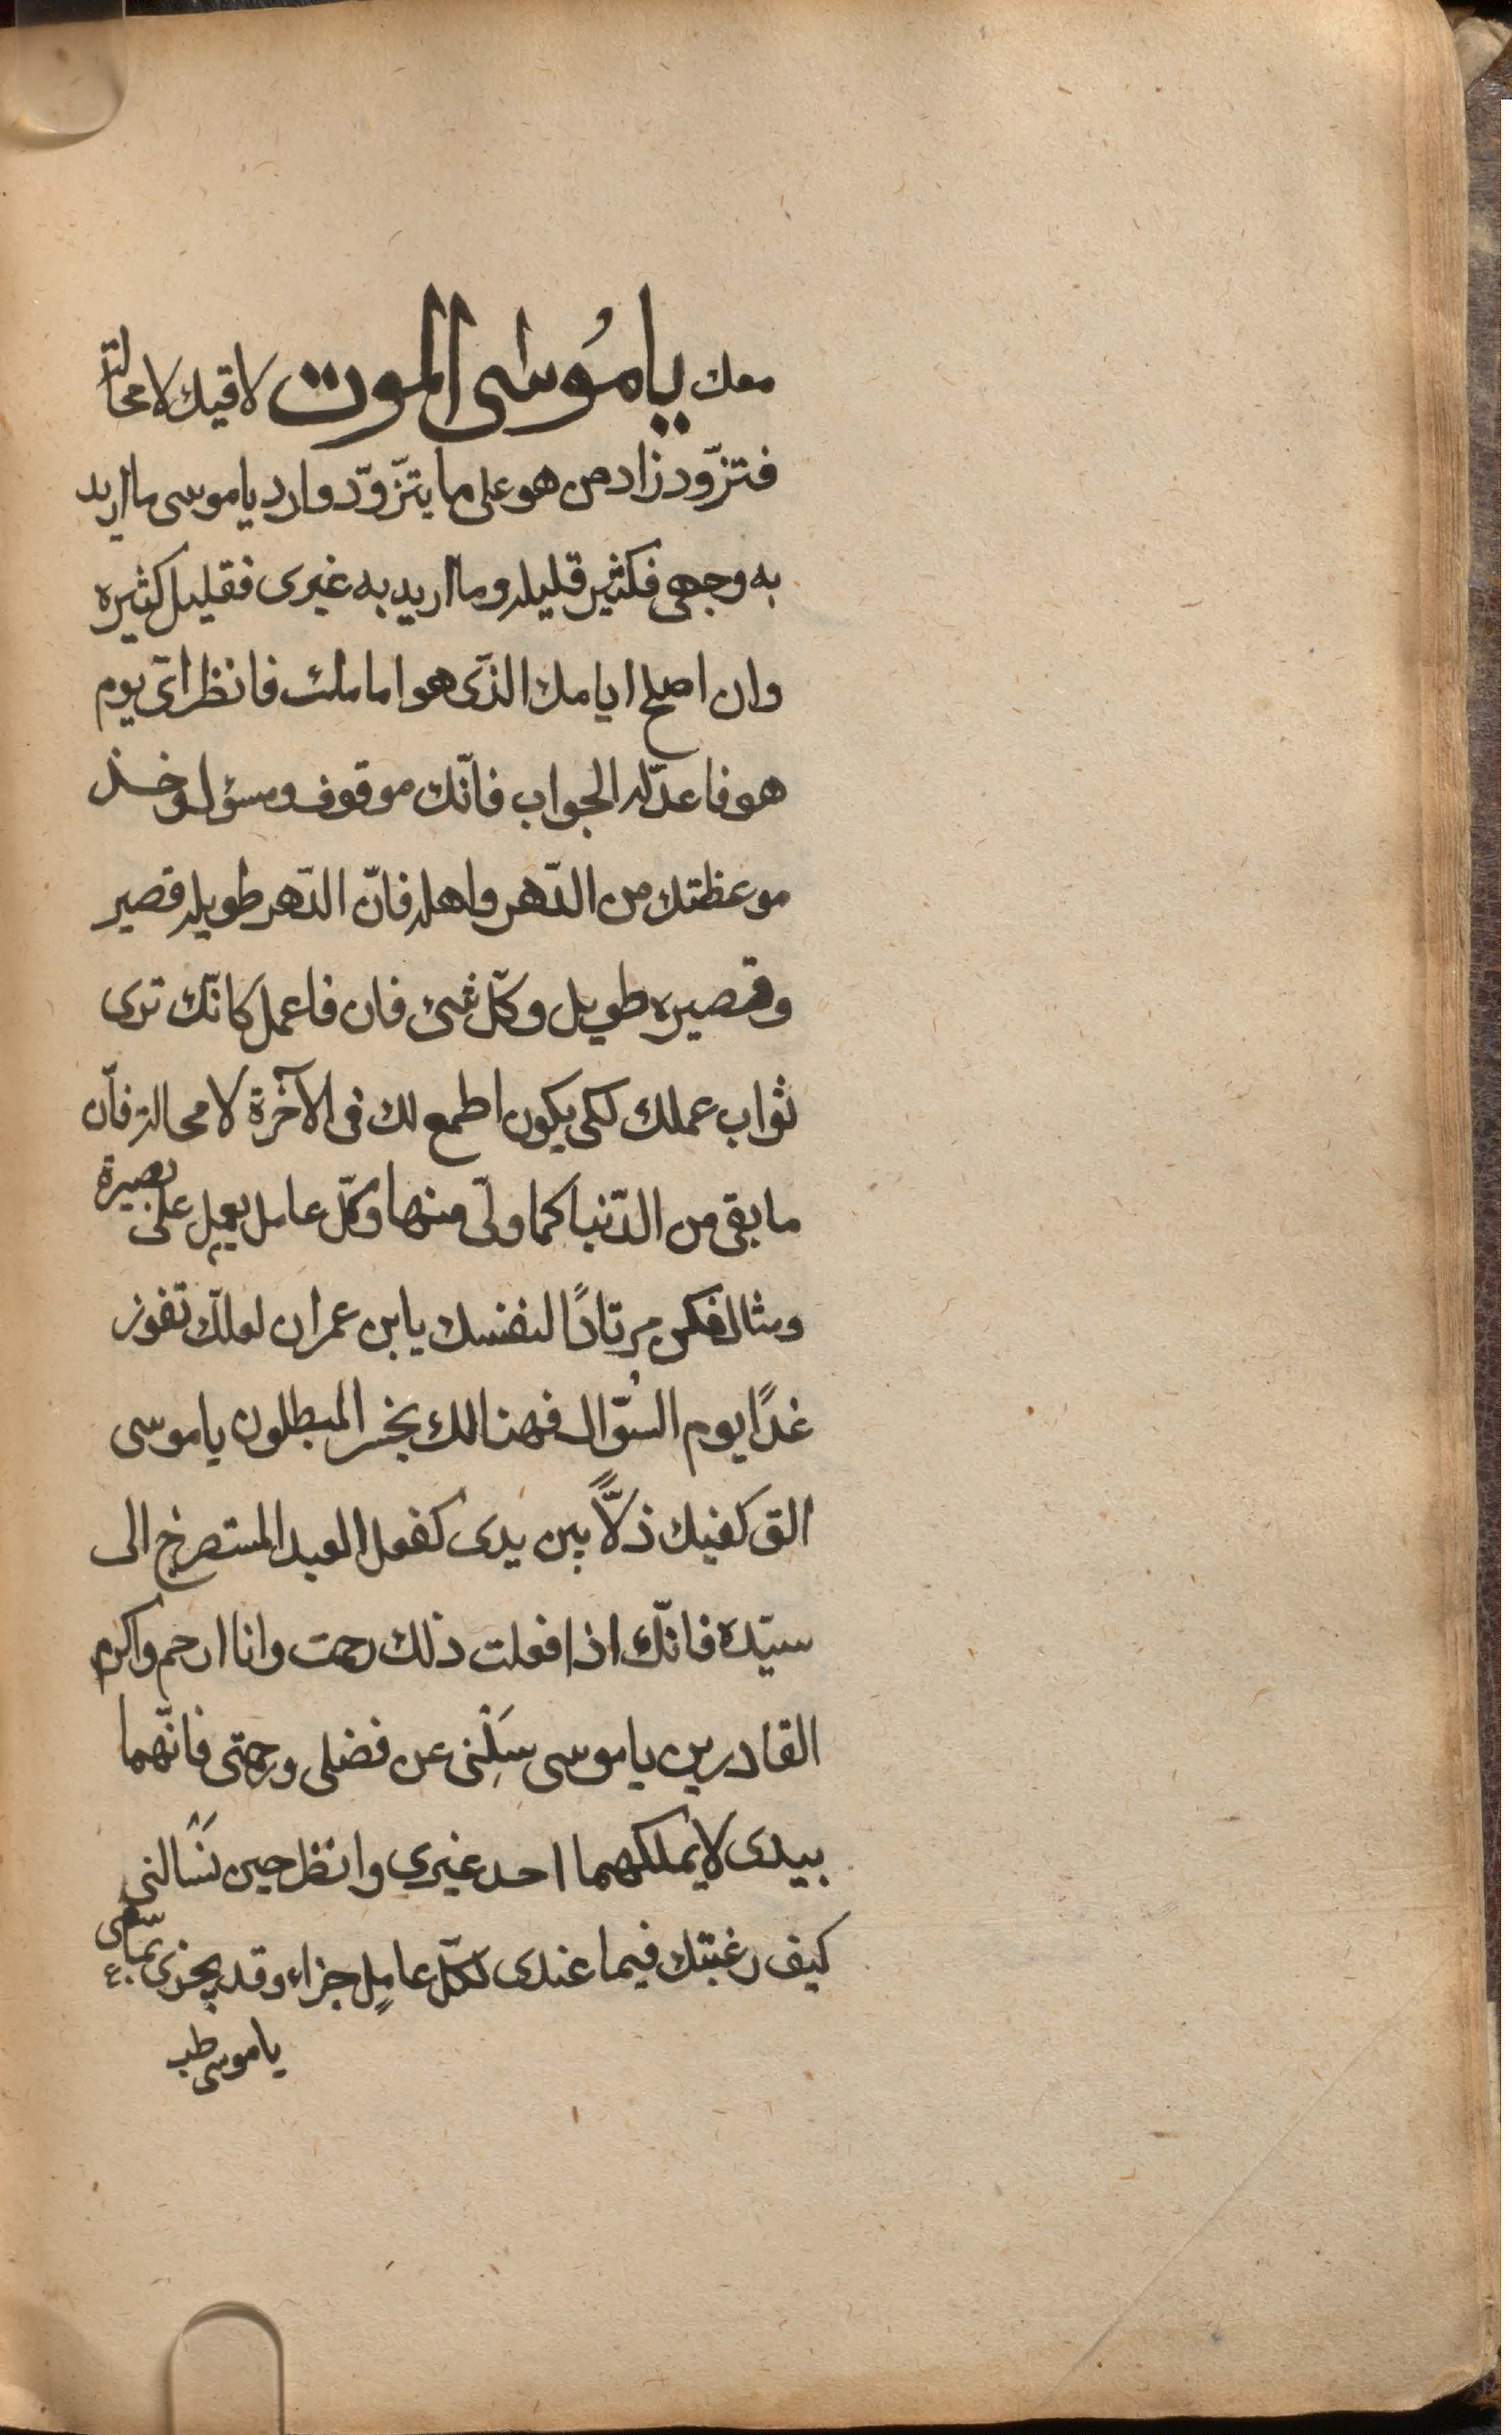 معك يا مُوسٰى الموت لاقيك لا محالة
فتزّود زاد من هو على ما يتزّوّد وارد ياموسى ما اريد
به وجهى فكثير قليله وما اريد به غيرى فقليل كثيره
وان اصلح ايامك الذّى هو امامك فانظر اىّ يوم
هو فاعدّ له الجواب فانّك موقوف ومسؤل وخذ
موعظتك من الدّهر واهله فانّ الدّهر طويله قصير
وقصيره طويل وكلّ شئ فان فاعمل كانّك ترى
ثواب عملك لكى يكون اطمع لك فى الآخرة لا محالة فانّ
ما بقى من الدّنيا كما ولّى منها وكلّ عامل يعمل على بصيرة
ومثال فكن مرتادًا لنفسك يابن عمران لعلّك تفوز
غدًا يوم السّؤال فهنالك يخسر المبطلون ياموسى
الق كفيك ذلًّا بين يدى كفعل العبد المستصرخ الى
سيّده فانّك اذا فعلت ذلك رحمت وانا ارحم واكرم
القادرين ياموسى سَلْنِى عن فضلى ورحمتى فانّهما
بيدى لا يملكهما احد غيرى وانظر حين تسَألنى
كيف رغبتك فيما عندى لكلّ عاملٍ جزاء وقد يجزى بما سعى
ياموسى طب